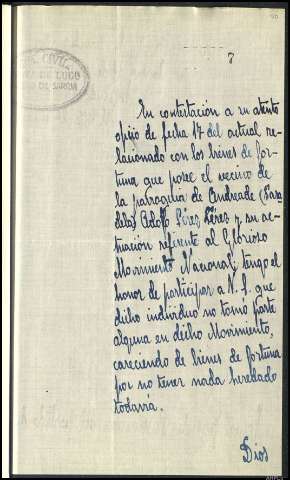 7
CIVIL
DE LUGO
DE SARRIA
En contestación a su atento
oficio de fecha 17 del actual re-
lacionado con los bienes de for-
tuna que posee el vecino de
la parroquia de Andreade (Para
dela) Adolfo Pérez Pérez y su ac-
tuación referente al Glorioso
Movimiento Nacional, tengo el
honor de participar a V. S. que
dicho individuo no tomó parte
alguna en dicho Movimiento,
careciendo de bienes de fortuna
por no tener nada heredado
todavía.
Dios